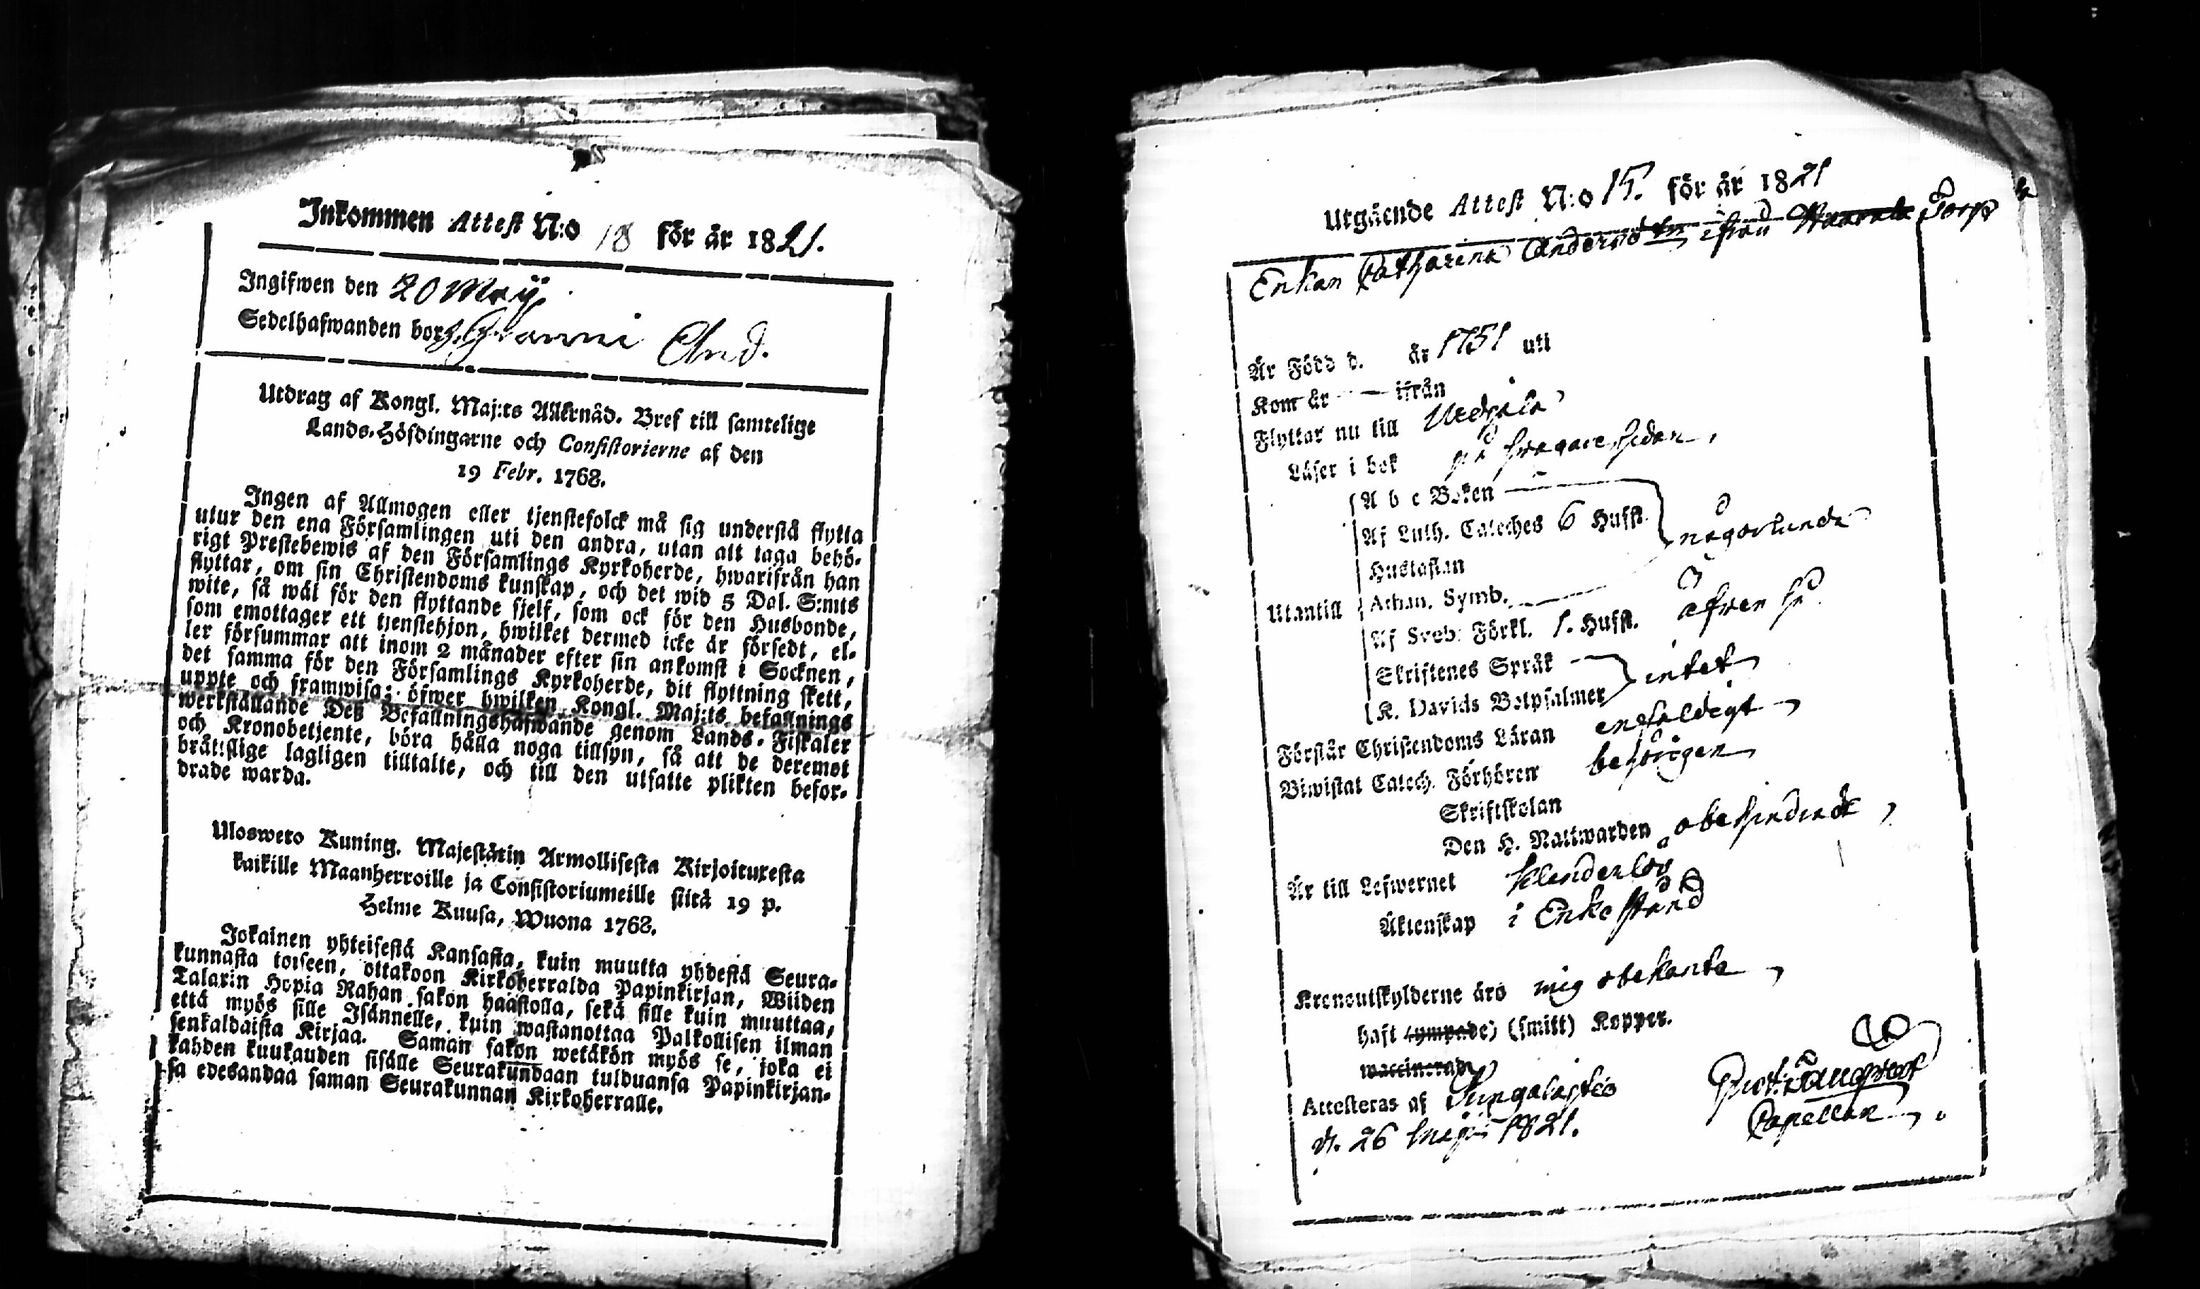 Inkommen Attest N:o 18 för år 1821.
Ingifwen den 20 Maij
Sedelhafwanden bor And.
Utdrag af Kongl. Maj:ts Allernåd. Bref till samtelige
Lands-Höfdingarne och Consistorierne af den
19 Febr. 1768.
Ingen af Allmogen eller tjenstefolck må sig understå flytta
utur den ena Församlingen uti den andra, utan att taga behö-
rigt Prestebewis af den Församlings Kyrkoherde, hwarifrån han
flyttar, om sin Christendoms kunskap, och det wid 5 Dal. S:mts
wite, så wäl för den flyttande sjelf, som ock för den Husbonde,
som emottager ett tjenstehjon, hwilket dermed icke är försedt, el-
ler försummar att inom 2 månader efter sin ankomst i Socknen,
det samma för den Församlings Kyrkoherde, dit flyttning skett,
uppte och framwisa; öfwer hwilken Kongl. Maj:ts befallnings
werkställande Deß Befallningshafwande genom Lands-Fiskaler
och Kronobetjente, böra hålla noga tillsyn, så att de deremot
bråttslige lagligen tilltalte, och till den utsatte plikten befor-
drade warda.
Uloswero Kuning. Majestätin Armollisesta Kirjoituxesta
kaikille Maanherroille ja Consistoriumeille siltä 19 p.
Helme Kuusa, Wuona 1768.
Jokainen yhteisestä Kansasta, kuin muutta yhdestä Seura-
kunnasta toiseen, ottakoon Kirkoherralda Papinkirjan, Wiiden
Talarin Hopia Rahan sakon haastolla, sekä sille kuin muuttaa,
että myös sille Isännelle, kuin wastanottaa Palkollisen ilman
senkaldaista Kirjaa. Saman sakon wetäkön myös se, joka ei
kahden kuukauden sisälle Seurakundaan tulduansa Papinkirjan-
sa edesandaa saman Seurakunnan Kirkoherralle.
Utgående Attest N:o 15. för år 1821
Enkan Catharina Andersd:r ifrån Torp
Är Född d. år 1751 uti
Kom år — ifrån
Flyttar nu till Urdiala
Läser i bok på fragare sidan,
A b c Boken
Af Luth. Catéches 6 Hufst. någorlunda
Hustaflan
Utantill Athan. Symb.
Af Sveb: Förkl. 1. Hufst. äfven så
Skriftenes Språk
K. Davids Botpsalmer intet
Förstår Christendoms Läran enfaldigt
Biwistat Catech. Förhören behörigen
Skriftskolan
Den H. Nattwarden obehindrade,
Är till Lefwernet klanderlös
Äktenskap i Enkestånd
Kronoutskylderne äro mig obekanta,
haft (ympade) (smitt) Koppor.
waccinerade
Attesteras af Sungalastis
d. 26 Maji 1821. Capellan